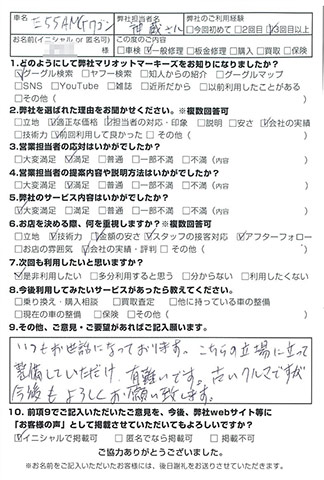 車名 E55AMGワゴン 弊社担当者名 さん 弊社のご利用経験
□今回初めて □2回目 ☑3回目以上
お名前(イニシャル or 匿名可) 様 この度のご内容
□車検 ☑一般修理 □板金修理 □購入 □買取 □保険
1.どのようにして弊社マリオットマーキーズをお知りになりましたか?
☑グーグル検索 □ヤフー検索 □知人からの紹介 □グーグルマップ
□SNS □YouTube □雑誌 □近所だから □以前利用したことがある
□その他( )
2.弊社を選ばれた理由をお聞かせください。※複数回答可
□立地 ☑適正な価格 ☑担当者の対応・印象 □説明 □安さ ☑会社の実績
□技術力 ☑前回利用して良かった □その他( )
3.営業担当者の応対はいかがでしたか?
□大変満足 ☑満足 □普通 □一部不満 □不満(内容 )
4.営業担当者の提案内容や説明方法はいかがでしたか?
□大変満足 ☑満足 □普通 □一部不満 □不満(内容 )
5.弊社のサービス内容はいかがでしたか?
□大変満足 ☑満足 □普通 □一部不満 □不満(内容 )
6.お店を決める際、何を重視しますか?※複数回答可
□立地 ☑技術力 ☑金額の安さ ☑スタッフの接客対応 ☑アフターフォロー
□お店の雰囲気 ☑会社の実績・評判 □その他( )
7.次回も利用したいと思いますか?
☑是非利用したい □多分利用すると思う □分からない □利用したくない
8.今後利用してみたいサービスがあったら教えてください。
□乗り換え・購入相談 □買取査定 □他に持っている車の整備
□現在の車の整備 □保険 □その他( )
9.その他、ご意見・ご要望があればご記入願います。
いつもお世話になっております。こちらの立場に立って
整備していただけ、有難いです。古いクルマですが
今後もよろしくお願い致します。
10.前項9でご記入いただいたご意見を、今後、弊社webサイト等に
「お客様の声」として掲載させていただいてもよろしいですか?
☑イニシャルで掲載可 □匿名でなら掲載可 □掲載不可
ご協力ありがとうございました。
※お名前をご記入いただいたお客様には、後日謝礼をお送りさせていただきます。